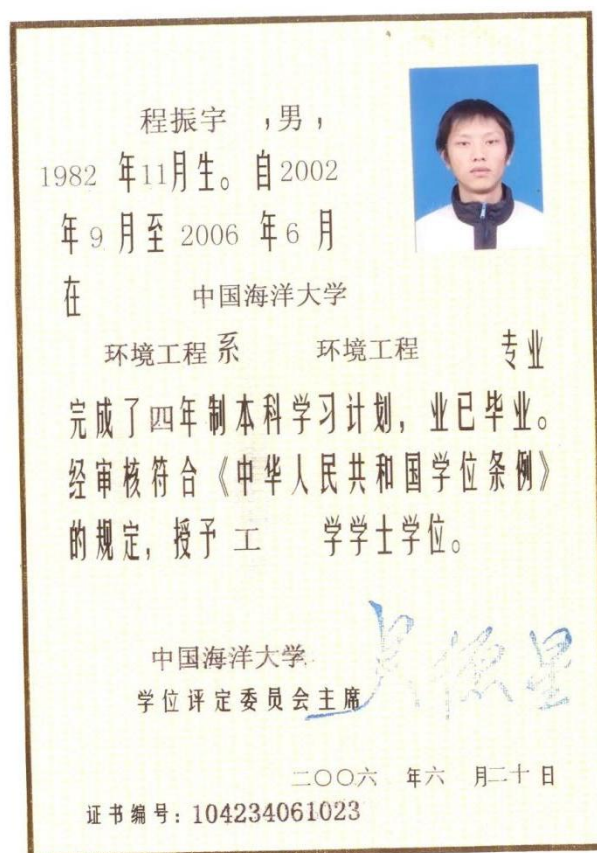 程振宇 ，男，
1982 年11月生。自2002
年9月至 2006 年6月
在 中国海洋大学
环境工程系 环境工程 专业
完成了四年制本科学习计划，业已毕业。
经审核符合《中华人民共和国学位条例》
的规定，授予 工 学学士学位。
中国海洋大学
学位评定委员会主席 吴德星
二〇〇六 年六 月二十日
证书编号：104234061023